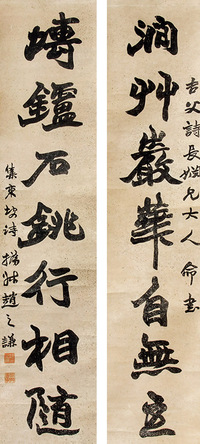 吉父詩長姻兄大人命書
澗艸巖華自無主
塼鑪石銚行相随
集東坡詩撝叔趙之謙